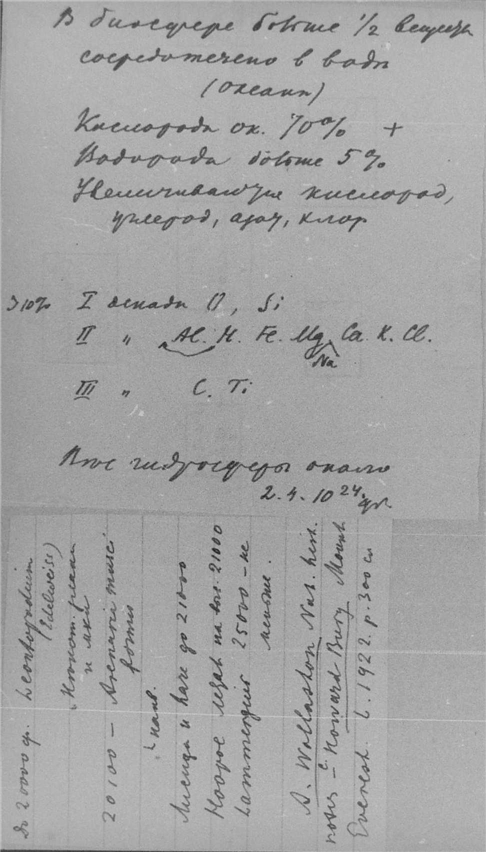 В биосфере больше 1/2 вещества
сосредоточено в воды
(океан)
Кислорода ок. 70% +
Водорода больше 5%
Увеличивающую кислород,
углерод, азот, хлор
>10% I декада O, Si
II " Al. H. Fe. Mg. Ca. K. Cl.
Na
III " C. Ti
Вес гидросферы около
2.4.10²⁴ гр.
до 20000 ф. Leontopodium
(Edelweise)
и мхи
20100 — Arenaria musci
formis
Лисица и hare до 21000
на выс. 21000
Lammergeier 25000 — не
меньше.
A. Wollaston Nat. hist.
notes — Howard Bury Mount
Everest. L. 1922. p. 300 сл